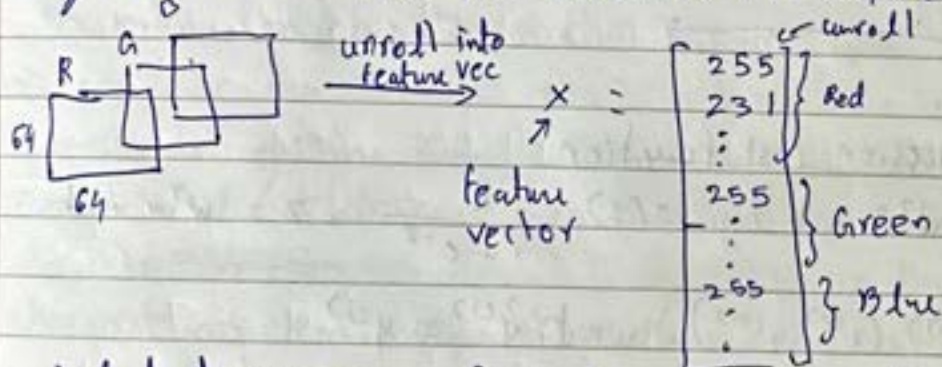 B
G
R
64
64
unroll into
feature vec
x =
feature
vector
unroll
255
231
⋮
Red
255
⋮
Green
255
⋮
Blue